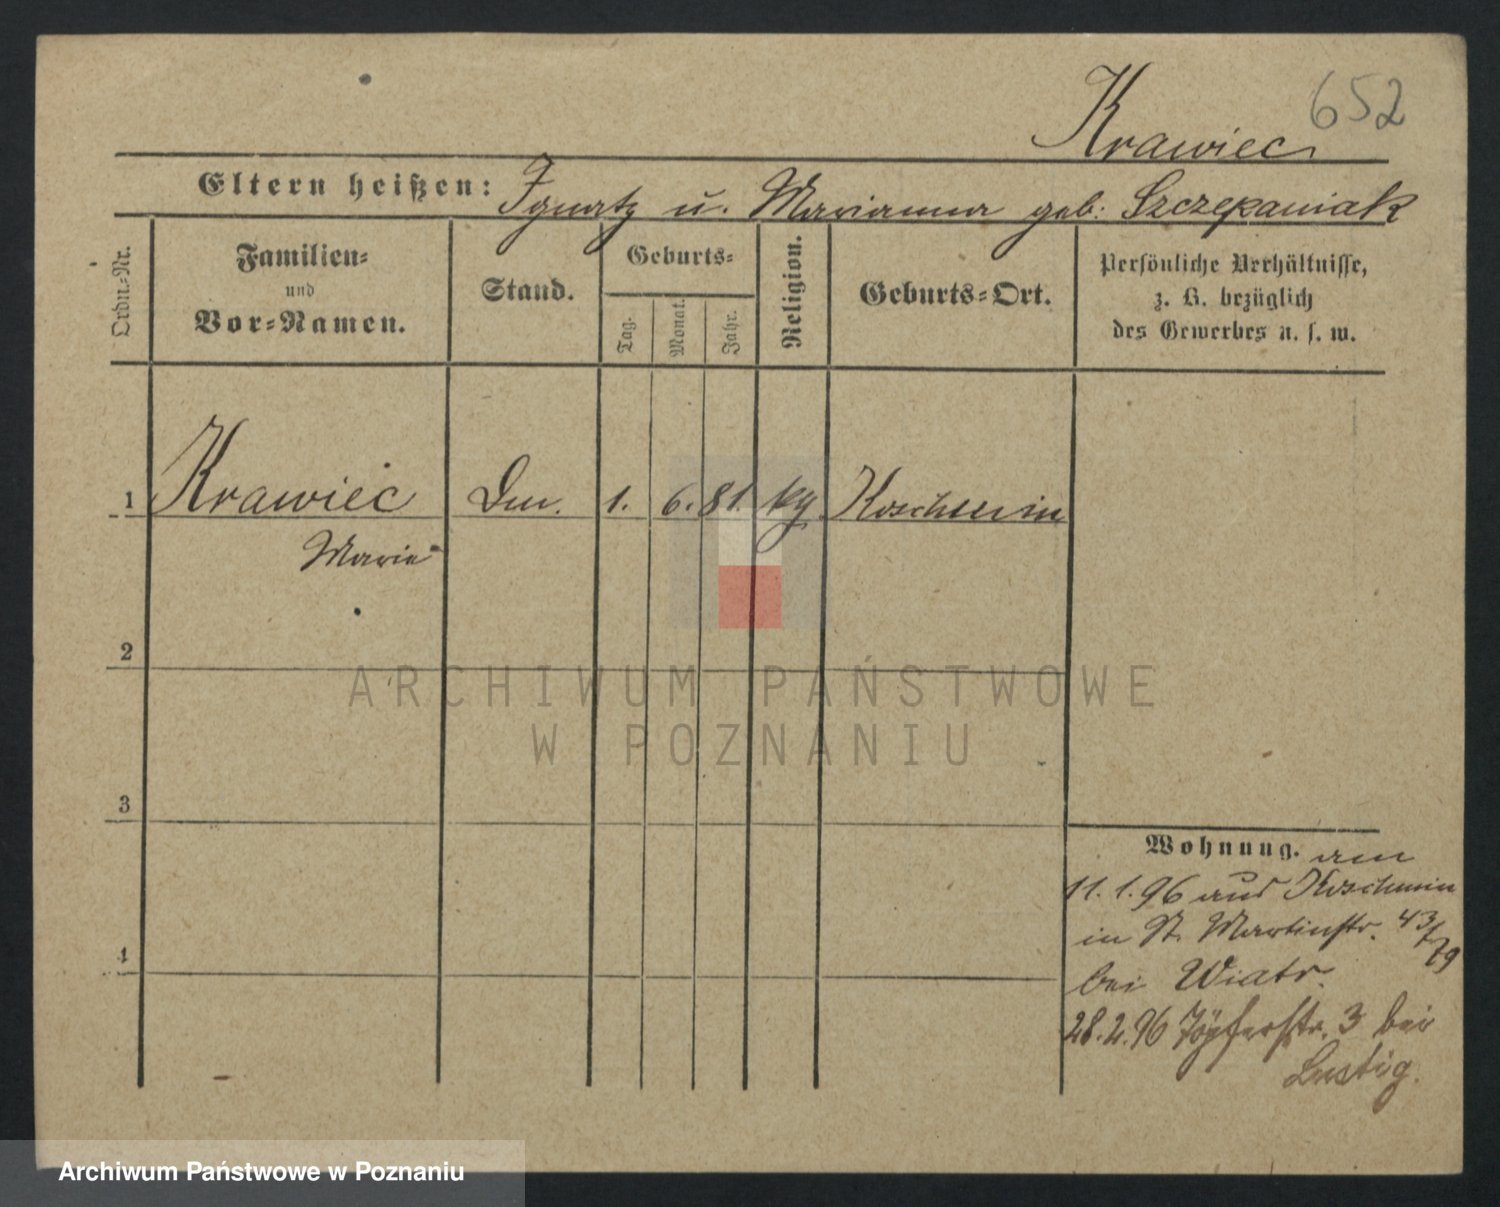 Krawiec 652
Eltern heißen: Ignatz u. Marianna geb: Szczepaniak
Ordn.-Nr.
Familien-
und
Vor-Namen.
Stand.
Geburts-
Tag.
Monat.
Jahr.
Religion.
Geburts-Ort.
Persönliche Verhältnisse,
z. B. bezüglich
des Gewerbes u. s. w.
1 Krawiec 1. 6. 81. Koschmin
Marie
2
3
4
Wohnung. am
11.1.96 aus Koschmin
in St. Martinstr. 43/79
bei Wiatr.
28.2.96 Töpferstr. 3 bei
Lustig.
ARCHIWUM PAŃSTWOWE
W POZNANIU
Archiwum Państwowe w Poznaniu